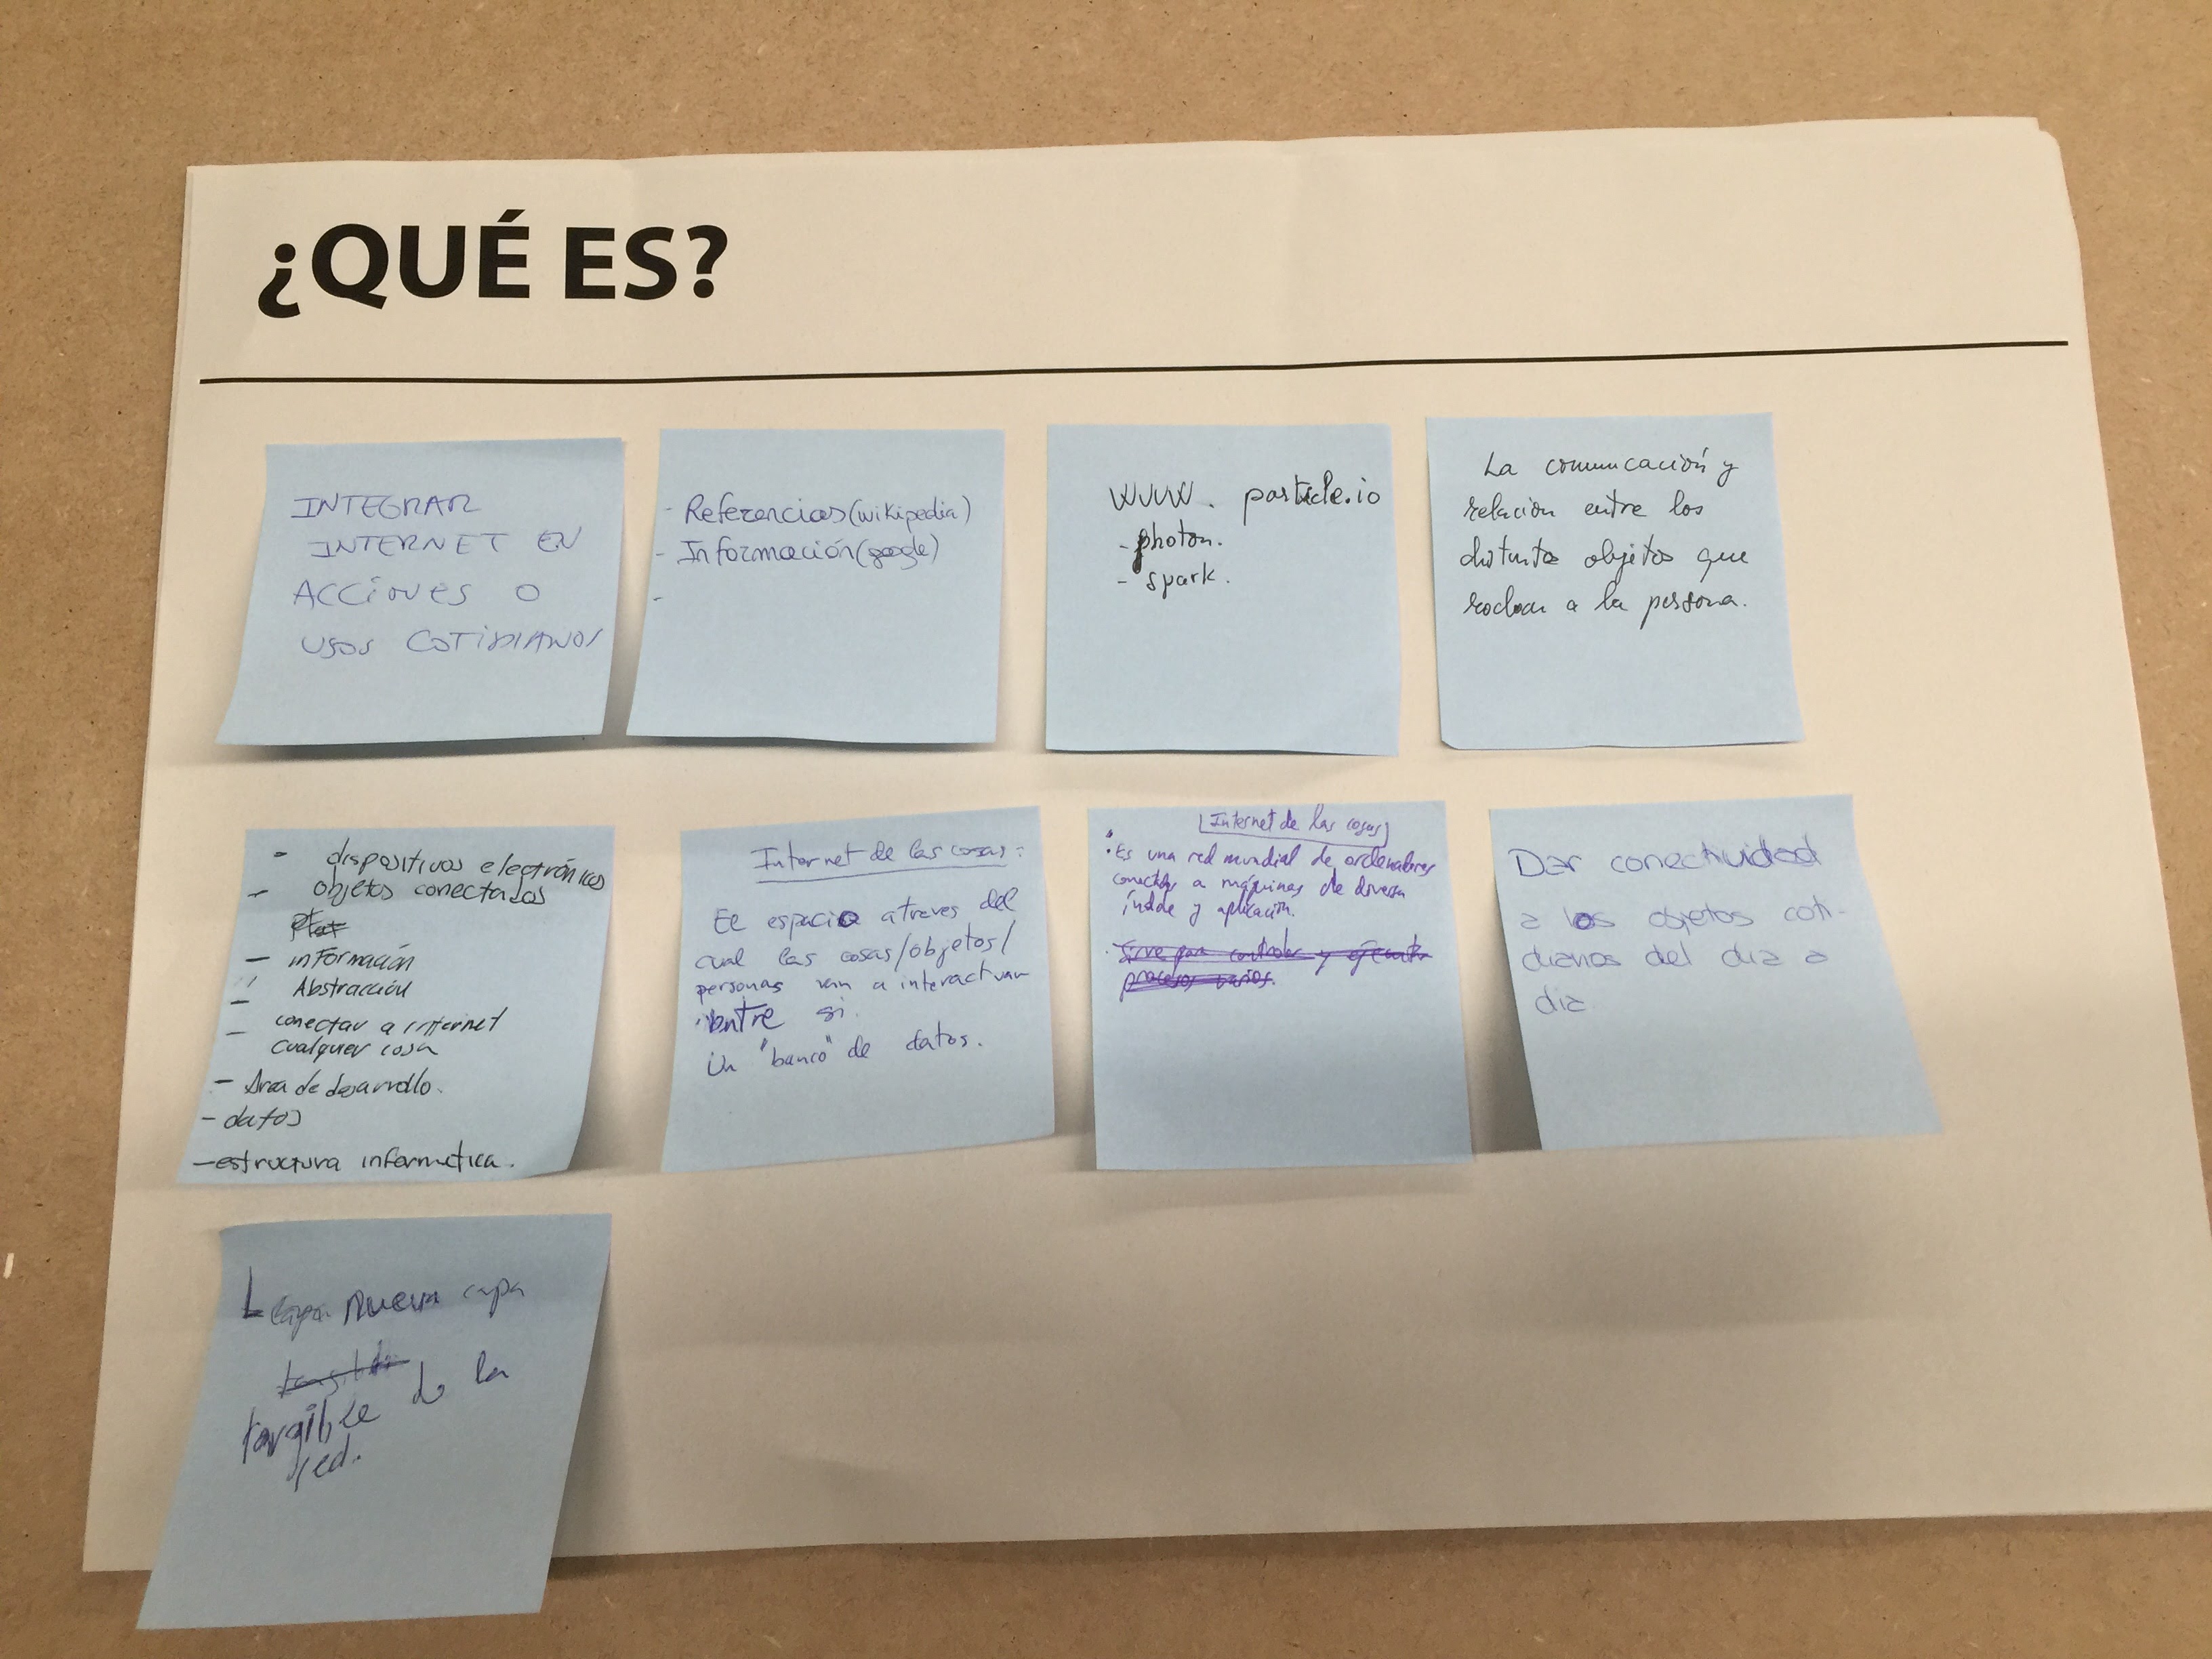 ¿QUÉ ES?
INTEGRAR
INTERNET EN
ACCIONES O
USOS COTIDIANOS
- Referencias (wikipedia)
- Información (google)
-
www. particle.io
- photon.
- spark.
La comunicación y
relacion entre los
distintos objetos que
rodean a la persona.
- dispositivos electrónicos
- objetos conectados
- información
- Abstracción
- conectar a internet
cualquier cosa
- Area de desarrollo.
- datos
- estructura informatica.
Internet de las cosas:
El espacio atreves del
cual las cosas/objetos/
personas van a interactuar
entre si.
Un "banco" de datos.
Internet de las cosas
· Es una red mundial de ordenadores
conectados a máquinas de diversa
índole y aplicación.
· Sirve para controlar y ejecutar
procesos varios.
Dar conectividad
a los objetos coti-
dianos del dia a
dia
nueva capa
tangible de la
red.